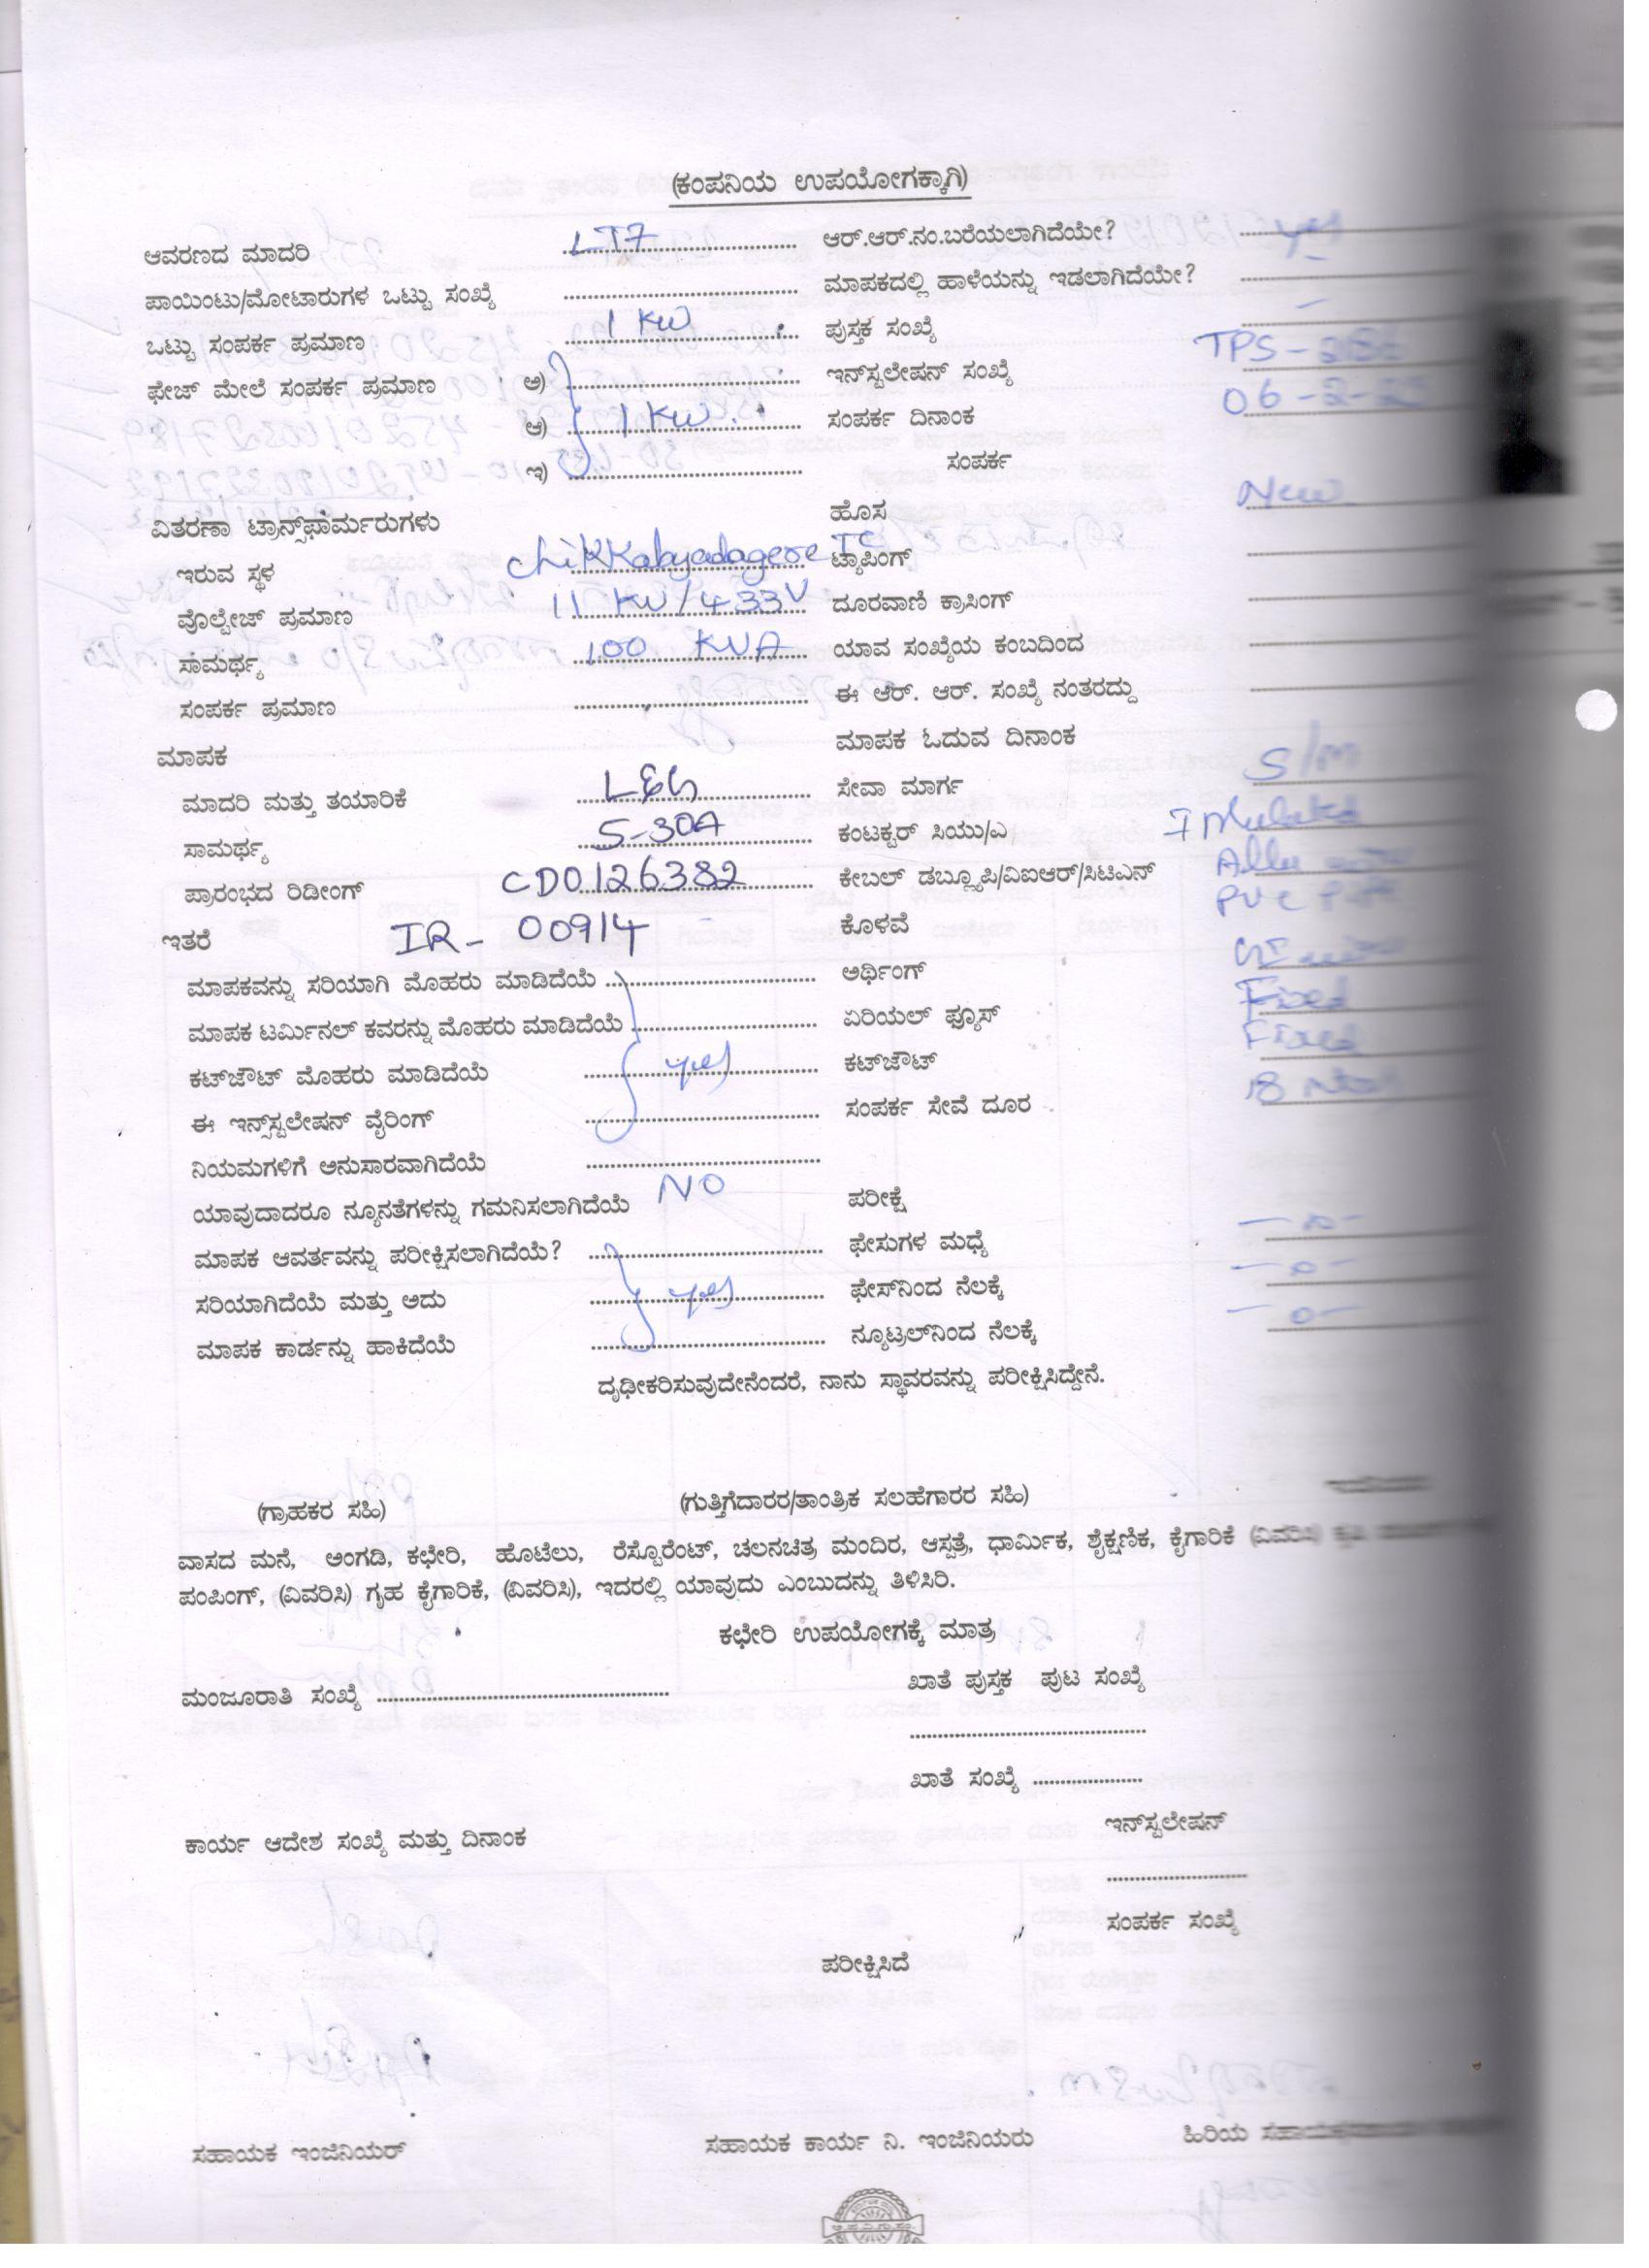 (ಕಂಪನಿಯ ಉಪಯೋಗಕ್ಕಾಗಿ)
ಆವರಣದ ಮಾದರಿ LT7 ಆರ್.ಆರ್.ನಂ.ಬರೆಯಲಾಗಿದೆಯೇ? yes
ಪಾಯಿಂಟು/ಮೋಟಾರುಗಳ ಒಟ್ಟು ಸಂಖ್ಯೆ ಮಾಪಕದಲ್ಲಿ ಹಾಳೆಯನ್ನು ಇಡಲಾಗಿದೆಯೇ? -
ಒಟ್ಟು ಸಂಪರ್ಕ ಪ್ರಮಾಣ 1 KW ಪುಸ್ತಕ ಸಂಖ್ಯೆ
ಫೇಜ್ ಮೇಲೆ ಸಂಪರ್ಕ ಪ್ರಮಾಣ ಅ) ಇನ್‌ಸ್ಟಲೇಷನ್ ಸಂಖ್ಯೆ TPS-
ಆ) 1 KW ಸಂಪರ್ಕ ದಿನಾಂಕ 06-2-
ಇ) ಸಂಪರ್ಕ
ವಿತರಣಾ ಟ್ರಾನ್ಸ್‌ಫಾರ್ಮರುಗಳು ಹೊಸ New
ಇರುವ ಸ್ಥಳ chikkabyadagere TC ಟ್ಯಾಪಿಂಗ್
ವೊಲ್ಟೇಜ್ ಪ್ರಮಾಣ 11 KV/433V ದೂರವಾಣಿ ಕ್ರಾಸಿಂಗ್
ಸಾಮರ್ಥ್ಯ 100 KVA ಯಾವ ಸಂಖ್ಯೆಯ ಕಂಬದಿಂದ
ಸಂಪರ್ಕ ಪ್ರಮಾಣ ಈ ಆರ್. ಆರ್. ಸಂಖ್ಯೆ ನಂತರದ್ದು
ಮಾಪಕ ಮಾಪಕ ಓದುವ ದಿನಾಂಕ
ಮಾದರಿ ಮತ್ತು ತಯಾರಿಕೆ L&G ಸೇವಾ ಮಾರ್ಗ S/M
ಸಾಮರ್ಥ್ಯ 5-30A ಕಂಟಕ್ಟರ್ ಸಿಯು/ಎ
ಪ್ರಾರಂಭದ ರಿಡೀಂಗ್ CD0126382 ಕೇಬಲ್ ಡಬ್ಲ್ಯೂಪಿ/ವಿಐಆರ್/ಸಿಟಿಎಸ್
ಇತರೆ IR- 00914 ಕೊಳವೆ PVC
ಮಾಪಕವನ್ನು ಸರಿಯಾಗಿ ಮೊಹರು ಮಾಡಿದೆಯೆ ಅರ್ಥಿಂಗ್
ಮಾಪಕ ಟರ್ಮಿನಲ್ ಕವರನ್ನು ಮೊಹರು ಮಾಡಿದೆಯೆ ಏರಿಯಲ್ ಫ್ಯೂಸ್ Fixed
ಕಟ್‌ಔಟ್ ಮೊಹರು ಮಾಡಿದೆಯೆ yes ಕಟ್‌ಔಟ್ Fixed
ಈ ಇನ್ಸ್‌ಸ್ಟಲೇಷನ್ ವೈರಿಂಗ್ ಸಂಪರ್ಕ ಸೇವೆ ದೂರ 18
ನಿಯಮಗಳಿಗೆ ಅನುಸಾರವಾಗಿದೆಯೆ
ಯಾವುದಾದರೂ ನ್ಯೂನತೆಗಳನ್ನು ಗಮನಿಸಲಾಗಿದೆಯೆ NO ಪರೀಕ್ಷೆ
ಮಾಪಕ ಆವರ್ತವನ್ನು ಪರೀಕ್ಷಿಸಲಾಗಿದೆಯೆ? ಫೇಸುಗಳ ಮಧ್ಯೆ -0-
ಸರಿಯಾಗಿದೆಯೆ ಮತ್ತು ಅದು yes ಫೇಸ್‌ನಿಂದ ನೆಲಕ್ಕೆ -0-
ಮಾಪಕ ಕಾರ್ಡನ್ನು ಹಾಕಿದೆಯೆ ನ್ಯೂಟ್ರಲ್‌ನಿಂದ ನೆಲಕ್ಕೆ -0-
ದೃಢೀಕರಿಸುವುದೇನೆಂದರೆ, ನಾನು ಸ್ಥಾವರವನ್ನು ಪರೀಕ್ಷಿಸಿದ್ದೇನೆ.
(ಗ್ರಾಹಕರ ಸಹಿ) (ಗುತ್ತಿಗೆದಾರರ/ತಾಂತ್ರಿಕ ಸಲಹೆಗಾರರ ಸಹಿ)
ವಾಸದ ಮನೆ, ಅಂಗಡಿ, ಕಛೇರಿ, ಹೊಟೆಲು, ರೆಸ್ಟೊರೆಂಟ್, ಚಲನಚಿತ್ರ ಮಂದಿರ, ಆಸ್ಪತ್ರೆ, ಧಾರ್ಮಿಕ, ಶೈಕ್ಷಣಿಕ, ಕೈಗಾರಿಕೆ (ವಿವರಿಸಿ)
ಪಂಪಿಂಗ್, (ವಿವರಿಸಿ) ಗೃಹ ಕೈಗಾರಿಕೆ, (ವಿವರಿಸಿ), ಇದರಲ್ಲಿ ಯಾವುದು ಎಂಬುದನ್ನು ತಿಳಿಸಿರಿ.
ಕಛೇರಿ ಉಪಯೋಗಕ್ಕೆ ಮಾತ್ರ
ಮಂಜೂರಾತಿ ಸಂಖ್ಯೆ ಖಾತೆ ಪುಸ್ತಕ ಪುಟ ಸಂಖ್ಯೆ
ಖಾತೆ ಸಂಖ್ಯೆ
ಕಾರ್ಯ ಆದೇಶ ಸಂಖ್ಯೆ ಮತ್ತು ದಿನಾಂಕ ಇನ್‌ಸ್ಟಲೇಷನ್
ಸಂಪರ್ಕ ಸಂಖ್ಯೆ
ಪರೀಕ್ಷಿಸಿದೆ
ಸಹಾಯಕ ಇಂಜಿನಿಯರ್ ಸಹಾಯಕ ಕಾರ್ಯ ನಿ. ಇಂಜಿನಿಯರು ಹಿರಿಯ